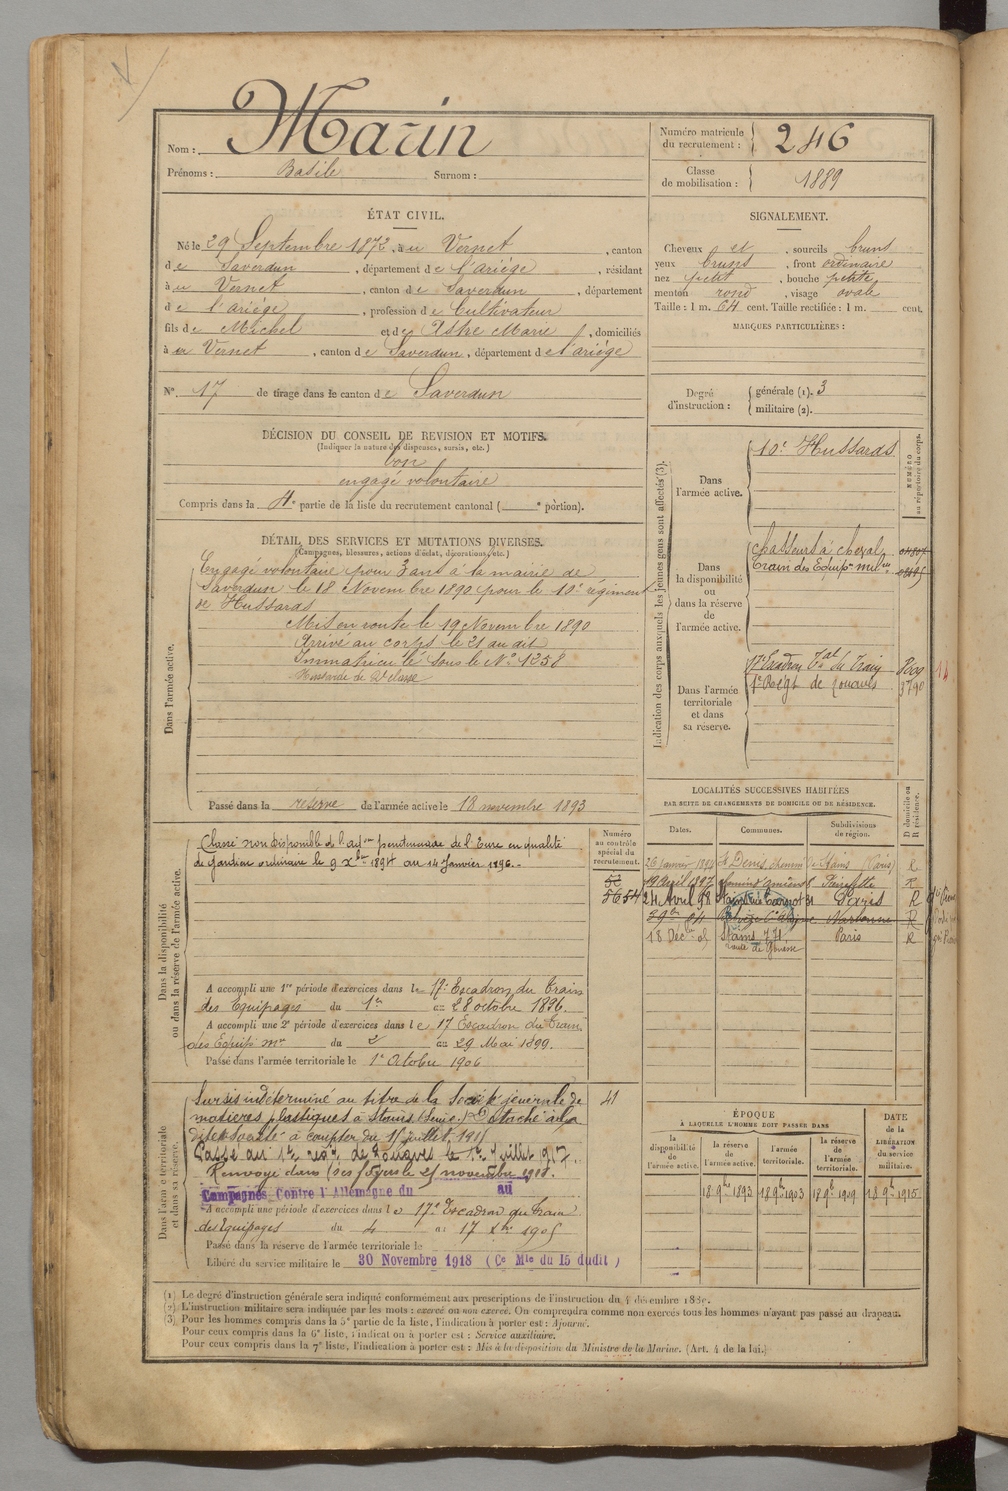 Nom : Marin
Prénoms : Basile Surnom :
Numéro matricule du recrutement : 246
Classe de mobilisation : 1889
ÉTAT CIVIL.
Né le 29 Septembre 1872, à u Vernet, canton
de Saverdun, département de l'ariège, résidant
à u Vernet, canton de Saverdun, département
de l'ariège, profession de Cultivateur
fils de Michel et de Astre Marie, domiciliés
à u Vernet, canton de Saverdun, département de l'ariège
N° 17 de tirage dans le canton de Saverdun
SIGNALEMENT.
Cheveux et, sourcils bruns
yeux bruns, front ordinaire
nez petit, bouche petite
menton rond, visage ovale
Taille : 1 m. 64 cent. Taille rectifiée : 1 m. cent.
MARQUES PARTICULIÈRES :
Degré d'instruction : générale (1). 3
militaire (2).
DÉCISION DU CONSEIL DE REVISION ET MOTIFS.
(Indiquer la nature des dispenses, sursis, etc.)
bon
engagé volontaire
Compris dans la 4e partie de la liste du recrutement cantonal ( e portion).
DÉTAIL DES SERVICES ET MUTATIONS DIVERSES.
(Campagnes, blessures, actions d'éclat, décorations, etc.)
Dans l'armée active.
Engagé volontaire pour 3 ans à la mairie de
Saverdun le 18 Novembre 1890 pour le 10e régiment
de Hussards
Mis en route le 19 Novembre 1890
Arrivé au corps le 21 au dit
Immatriculé sous le N° 1258
Hussard de 2e classe
Passé dans la réserve de l'armée active le 18 novembre 1893
Indication des corps auxquels les jeunes gens sont affectés (3).
NUMÉRO au répertoire du corps.
Dans l'armée active.
10e Hussards
Dans la disponibilité ou dans la réserve de l'armée active.
Chasseurs à cheval
Train des Equip. milres
Dans l'armée territoriale et dans sa réserve.
17e Escadron Tal du Train
1er Régt de Zouaves 3790
14
LOCALITÉS SUCCESSIVES HABITÉES
PAR SUITE DE CHANGEMENTS DE DOMICILE OU DE RÉSIDENCE.
Dates. Communes. Subdivisions de région. D domicile ou R résidence.
26 Janvier 1894 St Denis, chemin de Stains (Paris) R
19 Avril 1897 R
24 Avril 98 Paris R
Narbonne R
18 Déc Stains Paris R
route de Gonesse
Dans la disponibilité ou dans la réserve de l'armée active.
Numéro au contrôle spécial du recrutement.
52
5654
Classé non disponible de l'adon pénitentiaire de l'Eure en qualité
de gardien ordinaire le 9 Xbre 1894 au 14 Janvier 1896.
A accompli une 1re période d'exercices dans le 17e Escadron du Train
des Equipages du 1er au 28 octobre 1896.
A accompli une 2e période d'exercices dans le 17 Escadron du Train
des Equips mres du 2 au 29 Mai 1899.
Passé dans l'armée territoriale le 1er Octobre 1906
Dans l'armée territoriale et dans sa réserve.
41
Sursis indéterminé au titre de la Société générale de
matières plastiques à Stains (Seine). Détaché à la
dite Société à compter du 15 juillet 1915
Passé au 1er régt de Zouaves le 1er Juillet 1917.
Renvoyé dans ses foyers le 25 novembre 1918.
Campagnes Contre l'Allemagne du au
A accompli une période d'exercices dans le 17e Escadron du Train
des Equipages du 4 au 17 Xbre 1905
Passé dans la réserve de l'armée territoriale le
Libéré du service militaire le 30 Novembre 1918 (Ce Mle du 15 dudit)
ÉPOQUE
À LAQUELLE L'HOMME DOIT PASSER DANS
la disponibilité de l'armée active.
la réserve de l'armée active.
l'armée territoriale.
la réserve de l'armée territoriale.
DATE de la LIBÉRATION du service militaire.
18 9bre 1893 18 9bre 1903 18 9bre 1909 18 9bre 1915
(1) Le degré d'instruction générale sera indiqué conformément aux prescriptions de l'instruction du 4 décembre 188.
(2) L'instruction militaire sera indiquée par les mots : exercé ou non exercé. On comprendra comme non exercés tous les hommes n'ayant pas passé au drapeau.
(3) Pour les hommes compris dans la 5e partie de la liste, l'indication à porter est : Ajourné.
Pour ceux compris dans la 6e liste, l'indication à porter est : Service auxiliaire.
Pour ceux compris dans la 7e liste, l'indication à porter est : Mis à la disposition du Ministre de la Marine. (Art. 4 de la loi.)